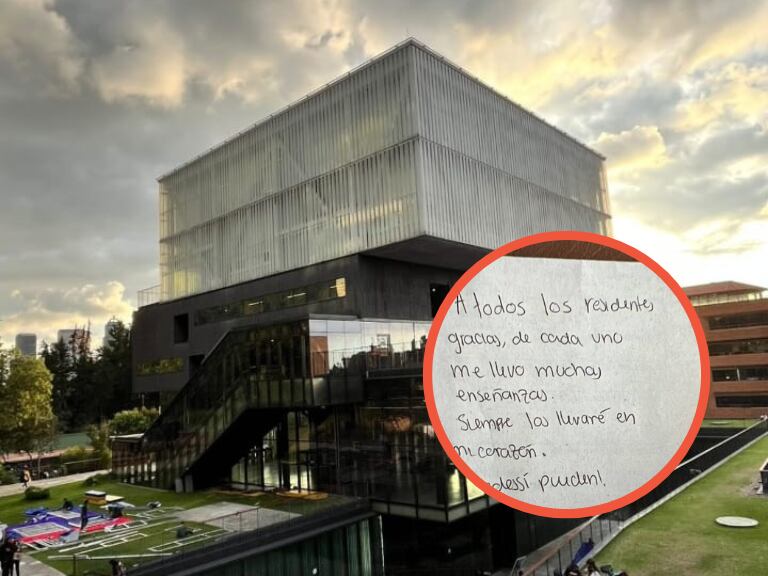 A todos los residentes,
gracias, de cada uno
me llevo muchas
enseñanzas.
Siempre los llevaré en
mi corazón.
pueden!